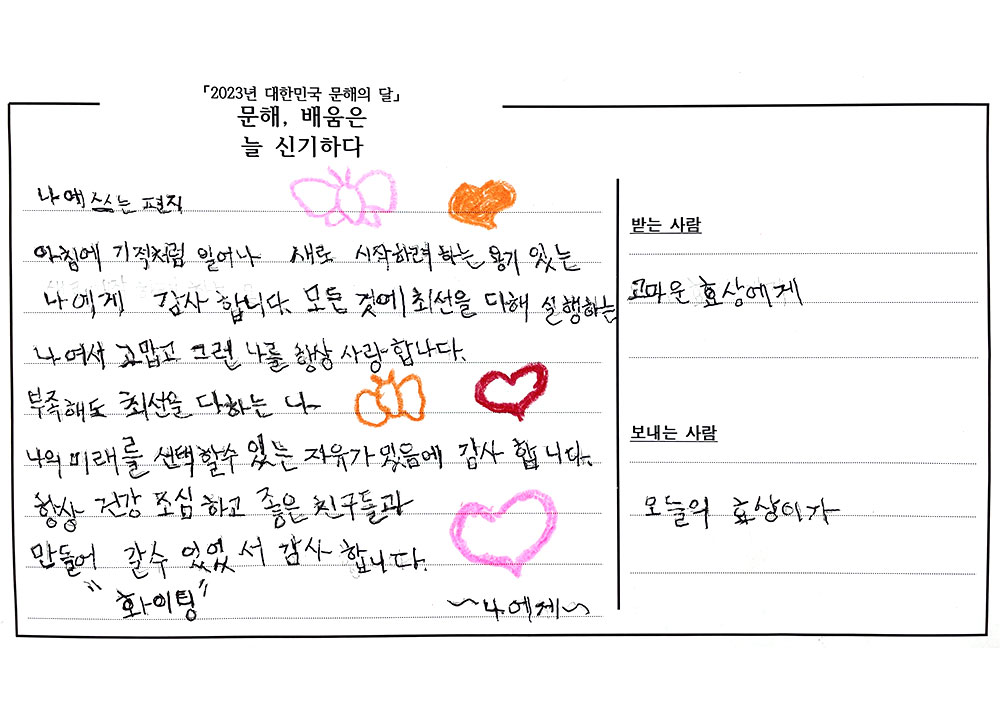 「2023년 대한민국 문해의 달」
문해, 배움은
늘 신기하다
나에 쓰는 편직
아침에 기적처럼 일어나 새로 시작하려 하는 용기 있는
나에게 감사 합니다. 모든 것에 최선을 다해 실행하는
나여서 고맙고 그런 나를 항상 사랑합니다.
부족해도 최선을 다하는 나
나의 미래를 선택할수 있는 자유가 있음에 감사 합니다.
항상 건강 조심하고 좋은 친구들과
만들어 갈수 있었서 감사 합니다.
"화이팅" ~나에게~
받는 사람
고마운 효상에게
보내는 사람
오늘의 효상이가